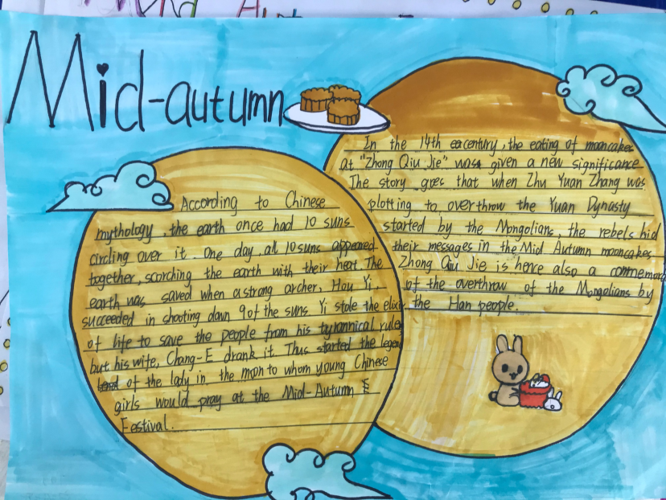 Mid-autumn
According to Chinese
mythology, the earth once had 10 suns
circling over it. One day, al 10 suns appeared
together, scorching the earth with their heat. The
earth was saved when a strong archer. Hou Yi,
succeeded in shooting down 9 of the suns. Yi stole the elixir
of life to save the people from his tyrannical rule,
but his wife, Chang-E drank it. Thus started the legen
of the lady in the moon to whom young Chinese
girls would pray at the Mid-Autumn
Festival.
In the 14th eacentury, the eating of mooncakes
at "Zhong Qiu Jie" was given a new significance.
The story goes that when Zhu Yuan Zhang was
plotting to overthrow the Yuan Dynasty
started by the Mongolians, the rebels hid
their messages in the Mid Autumn mooncakes
Zhong Qiu Jie is hence also a commemora
of the overthrow of the Mongolians by
the Han people.